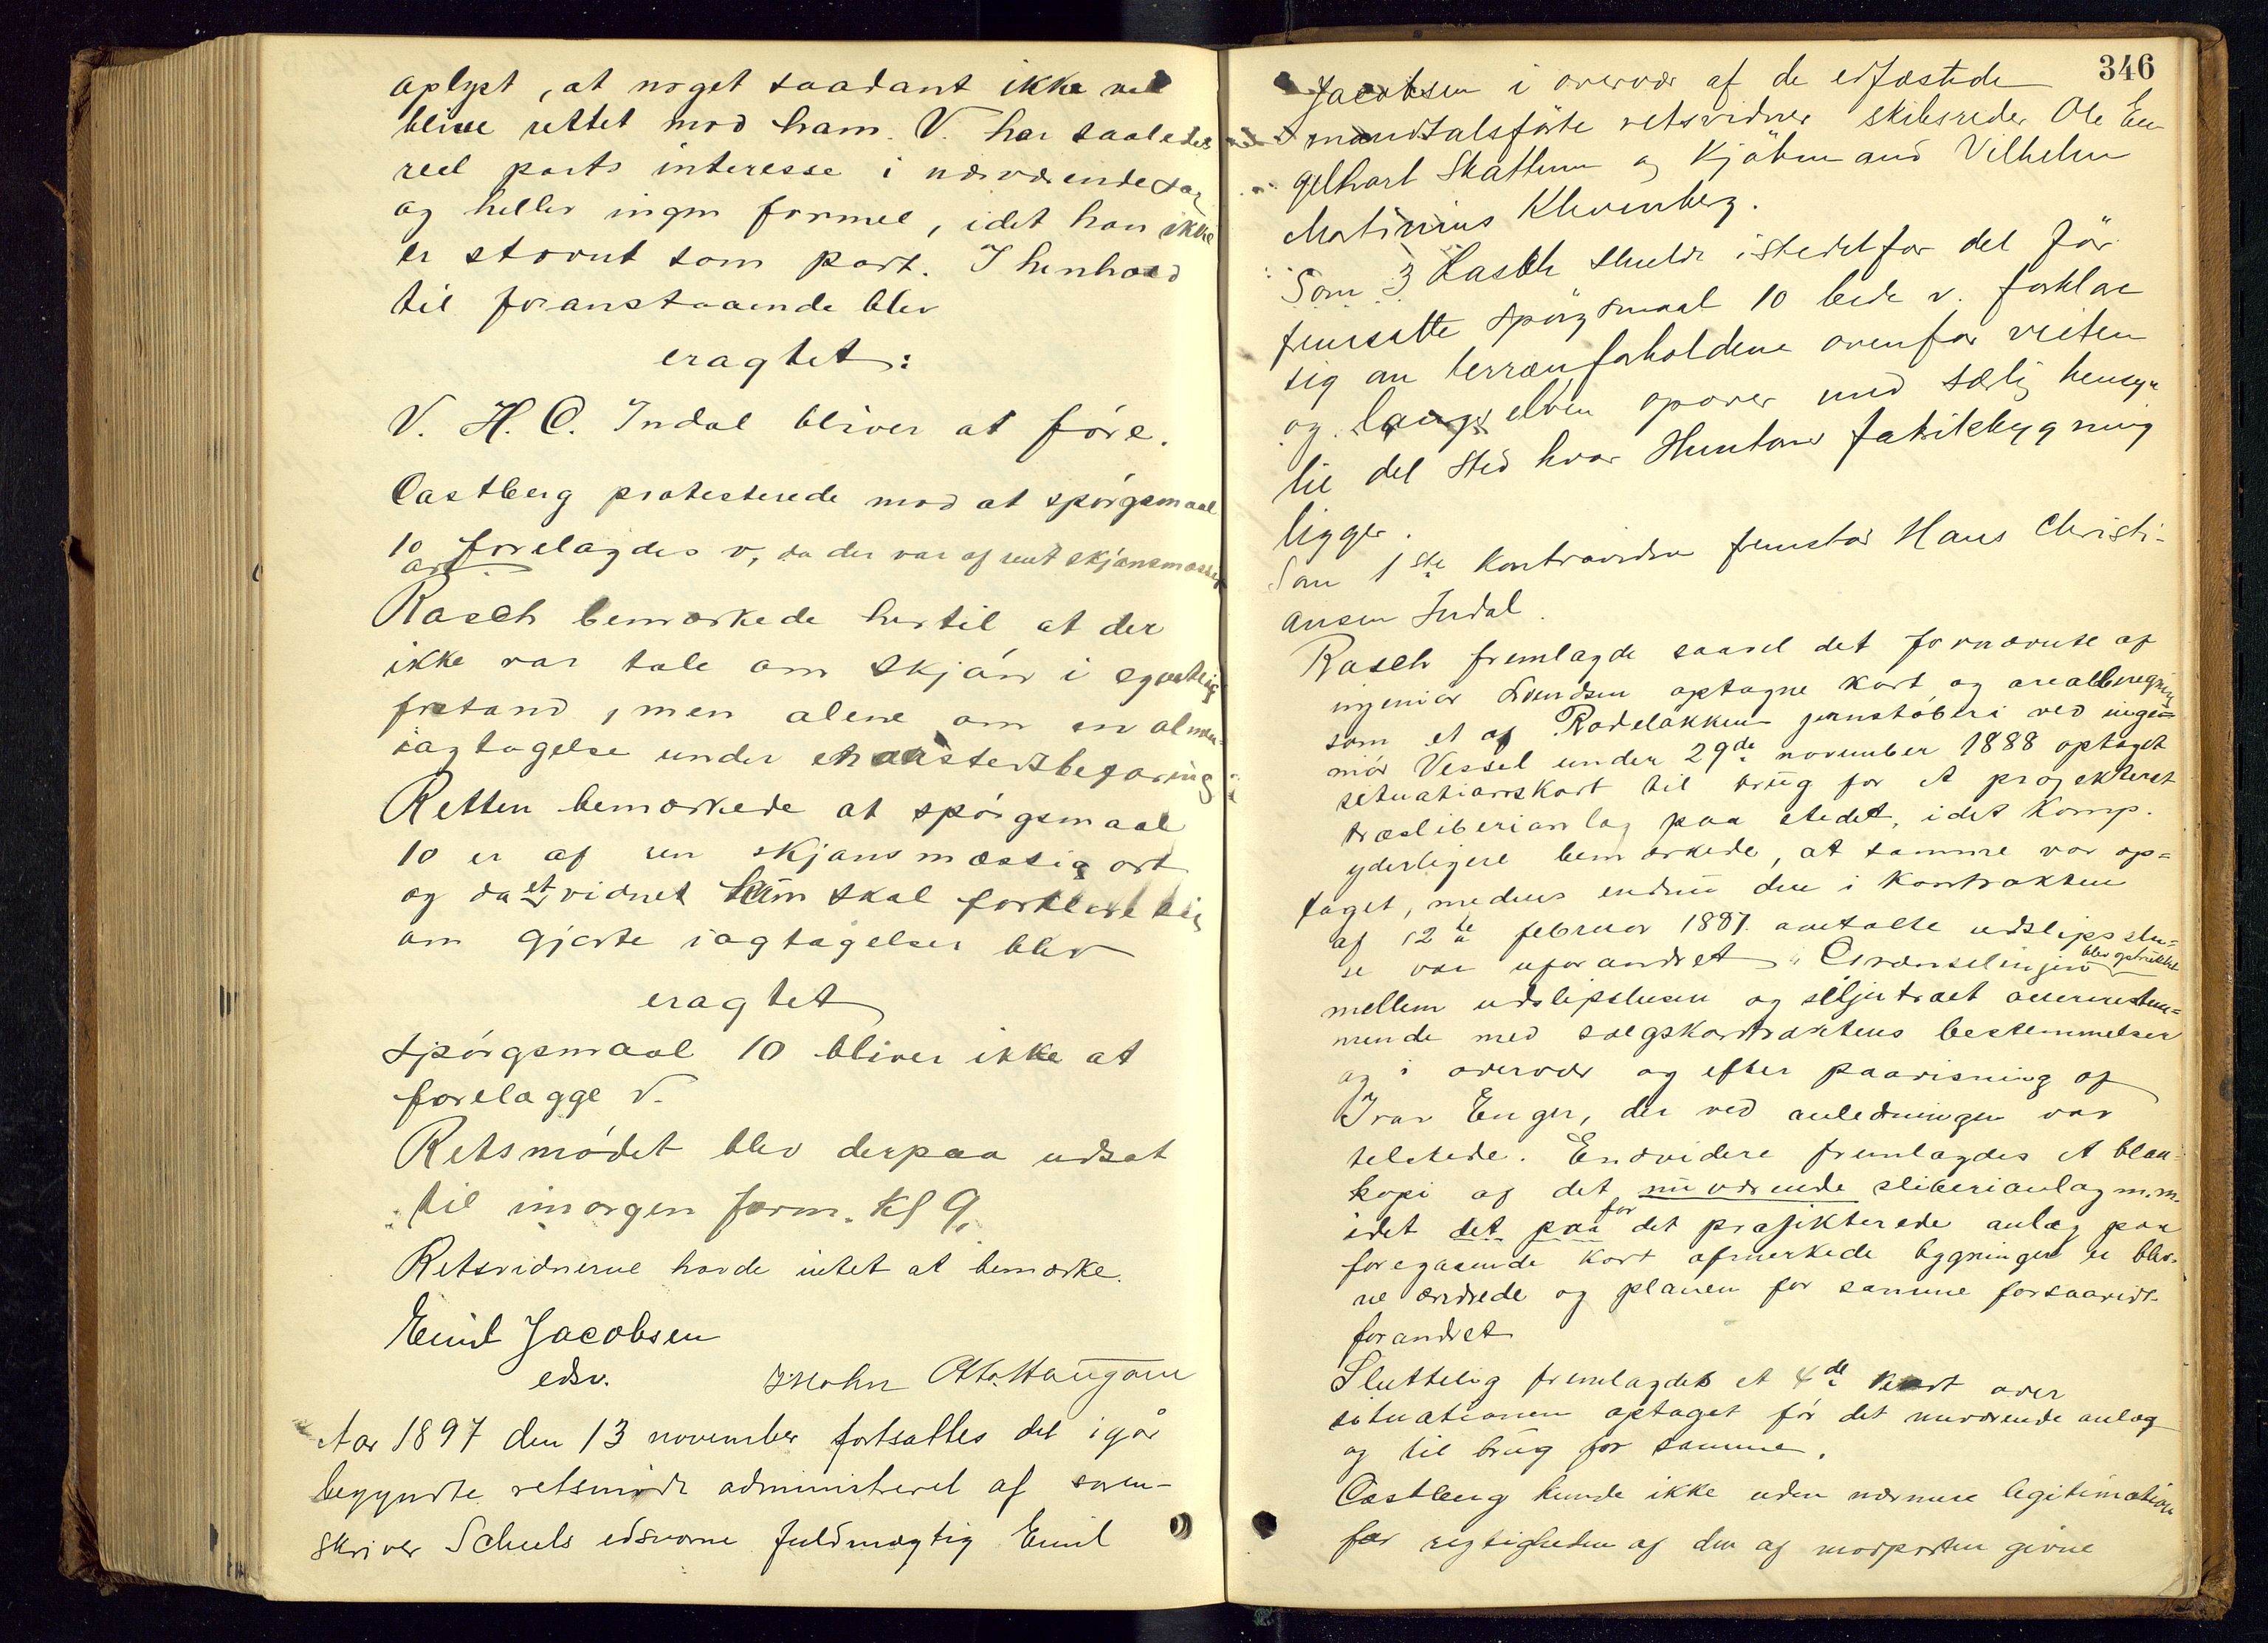 oplyst, at noget saadant ikke vil
blive rettet mod ham. V. har saaledes
reel parts interesse i nærværende sag
og heller ingen formel, idet han ikke
er stævnt som part. I henhold
til foranstaaende blev
eragtet:
V. H. C. Indal bliver at före.
Castberg protesterede mod at spörgsmaal
10 forelagdes v, da der var af rent skjönsmæssig
art
Rasch bemærkede hertil at der
ikke var tale om skjön i egentlig
forstand, men alene om en almen
iagtagelse under
Retten bemærkede at spörgsmaal
10 er af ren skjönsmæssig art
og da et vidnet kun skal forklare sig
om gjorte iagtagelser blev
eragtet
Spörgsmaal 10 bliver ikke at
forelægge V.
Retsmödet blev derpaa udsat
til imorgen form. Kl 9.
Retsvidnerne havde intet at bemærke.
Emil Jacobsen
edsv. Otto Haugom
Aar 1897 den 13 november fortsattes det igår
begyndte retsmöde administreret af soren-
skriver Scheels edsvorne fuldmægtig Emil
346
Jacobsen i overvær af de edfæstede
mandtalsförte retsvidner skibsreder Ole En
gelhart Skattum og Kjöbmand Vilhelm
Martinius Klevenberg.
Som 3 Rasch skulde istedetfor det för
fremsatte spörgsmaal 10 bede v. forklare
sig om terrænforholdene ovenfor veiten
og langs elven opover med særlig hensyn
til det sted hvor Huntons fabrikbygning
ligger.
Som 1ste Kontravidne fremstod Hans Christi-
ansen Indal.
Rasch fremlagde saavel det fornævnte af
ingeniör Svendsen optagne kart og arealberegning
som et af Rodelökkens jernstöberi ved inge=
niör Vessel under 29de november 1888 optaget
situationskart til brug for et projekteret
træsliberianlæg paa stedet, idet Komp.
yderligere bemærkede, at samme var op=
taget, medens endnu den i kontrakten
af 12te februar 1887 omtalte udslipsslu=
se var uforandret. Grænselinjen blev optrukket
mellem udslipslusen og seljetræet overenstem=
mende med salgskontraktens bestemmelser
og i overvær og efter paavisning af
Ivar Enger, der ved anledningen var
tilstede. Endvidere fremlagdes et blaa-
kopi af det nuværende sliberianlæg m.m.
idet det paa for det projekterede anlæg paa
foregaaende kart afmerkede bygninger er blev-
ne ændrede og planen for samme forsaavidt
forandret
Sluttelig fremlagdes et 4de kart over
situationen optaget för det nuværende anlæg
og til brug for samme.
Castberg kunde ikke uden nærmere legitimation
for rigtigheden af den af modparten givne